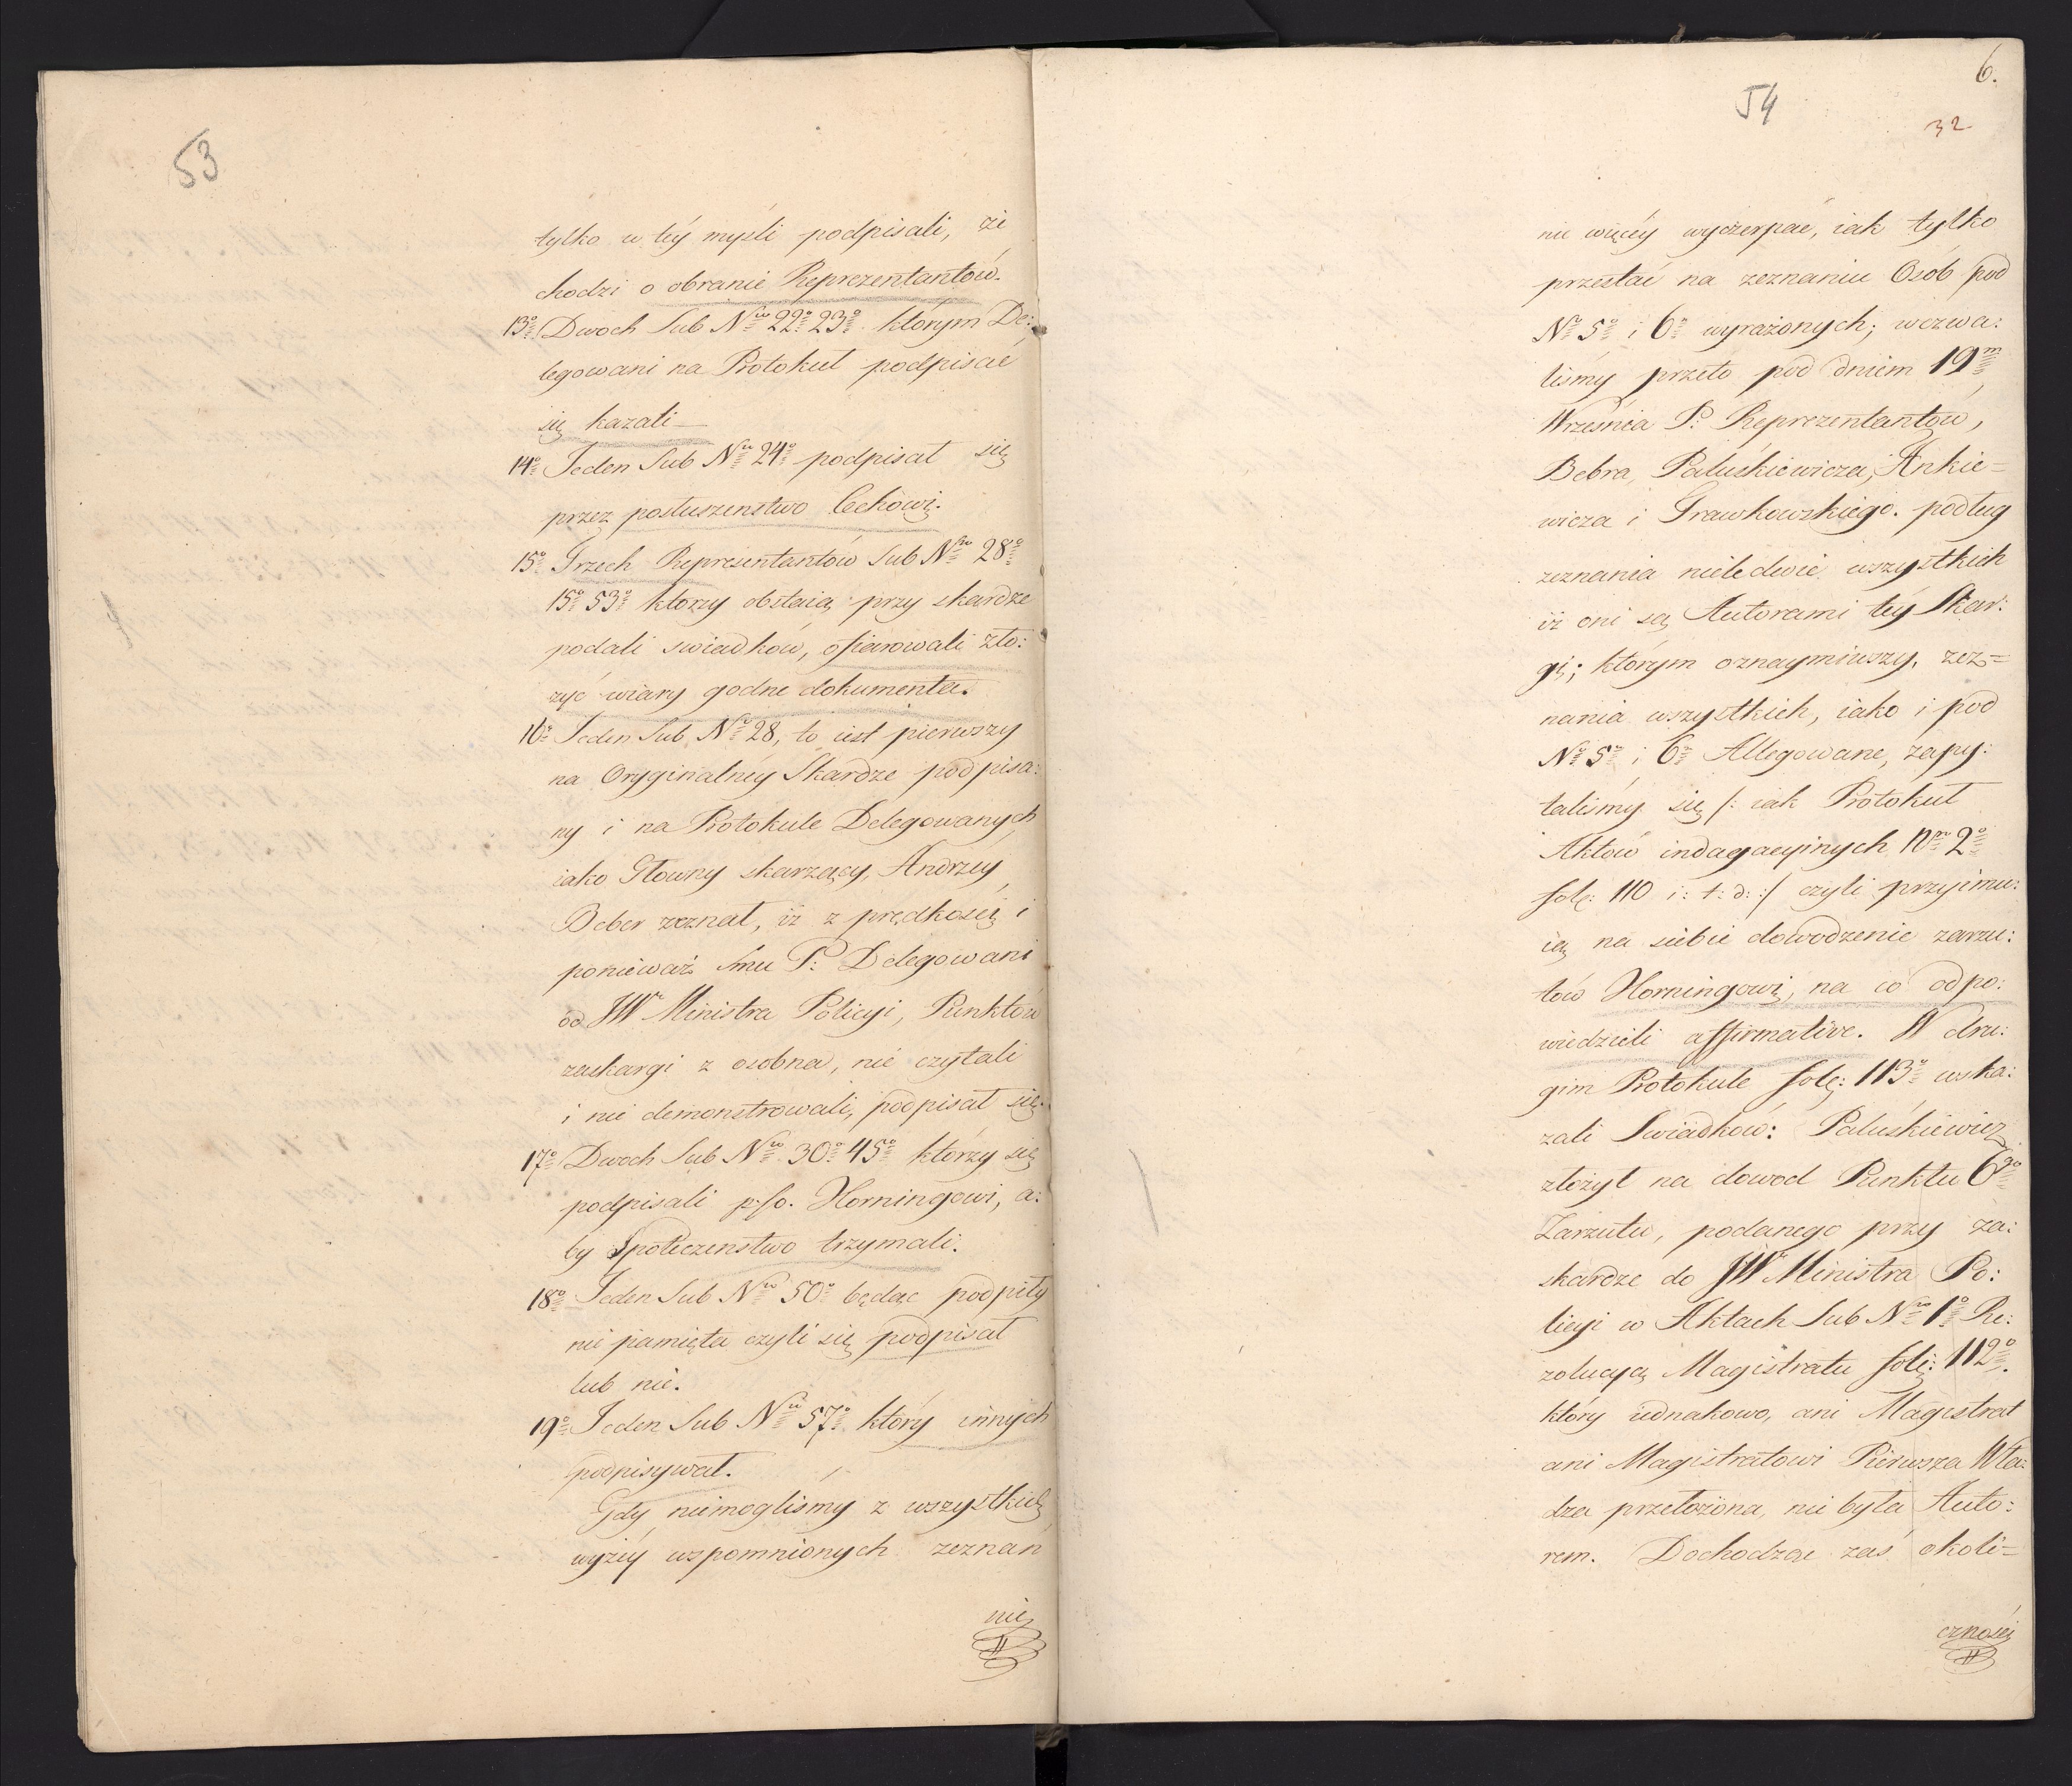 53
tylko w téy myśli podpisali, że
chodzi o obranie Reprezentantów.
13o Dwoch Sub Nro 22o 23o którym De:
legowani na Protokuł podpisać
się kazali —
14o Jeden Sub Nro 24o podpisał się
przez posłuszenstwo Cechowi.
15o Trzech Reprezentantów Sub Nro 28o
15o 53o ktorzy obstaią przy skardze
podali swiadków, ofiarowali zło:
zyć wiary godne dokumenta.
16o Jeden Sub Nro 28, to iest pierwszy
na Oryginalnéy Skardze podpisa:
ny i na Protokule Delegowanych
iako Głowny skarzący, Andrzéy
Beber zeznał, iż z prędkości i
ponieważ Jmu P: Delegowani
od JWo Ministra Policyi, Punktów
zaskargi z osobna, nie czytali
i nie demonstrowali, podpisał się.
17o Dwoch Sub Nro 30o 45o którzy się
podpisali p-ko. Horningowi, a:
by Społeczenstwo trzymali.
18o Jeden Sub Nro 50o będąc podpiły
nie pamięta czyli się podpisał
lub nie.
19o Jeden Sub Nro 57o który innych
podpisywał.
Gdy niemogliśmy z wszystkich
wyżéy wspomnionych zeznań
nic
6.
54
32
nic więcéy wyczerpać, iak tylko
przestać na zeznaniu Osób pod
No 5o i 6o wyrażonych; wezwa:
liśmy przeto pod dniem 19m
Września P: Reprezentantów,
Bebra, Paluśkiewicza, Ankie=
wicza i Trawkowskiego. podług
zeznania nieledwie wszystkich
iż oni są Autorami téy Skar:
gi; którym oznaymiwszy, zez=
nania wszystkich, iako i pod
No 5o i 6o Allegowane, zapy:
taliśmy się /: iak Protokuł
Aktów indagacyinych Nro 2o
folo: 110 i: t: d: :/ czyli przyimu:
ią na siebie dowodzenie zarzu:
tów Horningowi, na co odpo:
wiedzieli affirmative. W dru:
gim Protokule folo: 113o wska:
zali Swiadków: Paluśkiewicz
złożył na dowod Punktu 6go
Zarzutu, podanego przy za:
skardze do JWo Ministra Po:
licyi w Aktach Sub Nro 1o Re:
zolucyą Magistratu folo: 112o.
który iednakowo, ani Magistrat
ani Magistratowi Pierwsza Wła:
dza przełożona, nie była Auto:
rem. Dochodząc zaś okoli=
czności